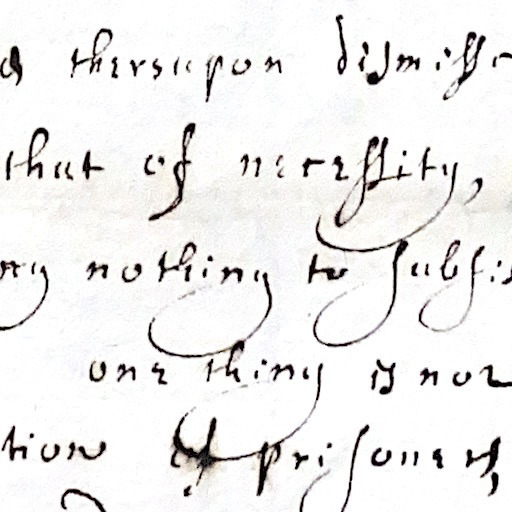 thereupon dismisse
that of necessity,
ng nothing to subsis
one thing is nor
tion of prisoners,